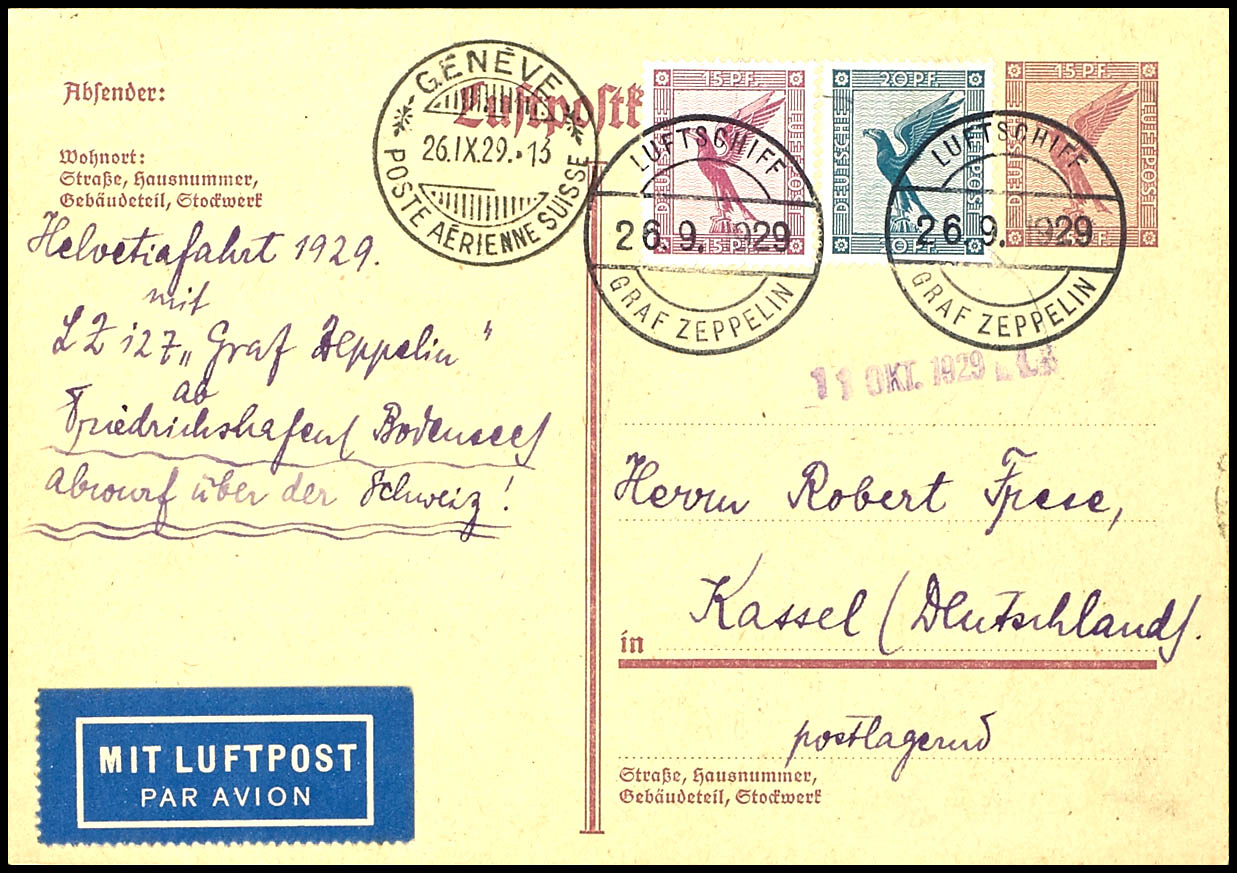 Absender:
Wohnort:
Straße, Hausnummer,
Gebäudeteil, Stockwerk
Helvetiafahrt 1929.
mit
LZ 127 „Graf Zeppelin"
ab
Friedrichshafen (Bodensee)
Abwurf über der Schweiz!
MIT LUFTPOST
PAR AVION
Luftpostk
GENÈVE
26.IX.29.·13
POSTE AÉRIENNE SUISSE
15 PF.
DEUTSCHE LUFTPOST
15 PF.
20 PF.
DEUTSCHE LUFTPOST
20 PF.
15 PF.
DEUTSCHE LUFTPOST
15 PF.
LUFTSCHIFF
26.9.1929
GRAF ZEPPELIN
LUFTSCHIFF
26.9.1929
GRAF ZEPPELIN
11 OKT. 1929
Herrn Robert Frese,
Kassel (Deutschland).
in
postlagernd
Straße, Hausnummer,
Gebäudeteil, Stockwerk